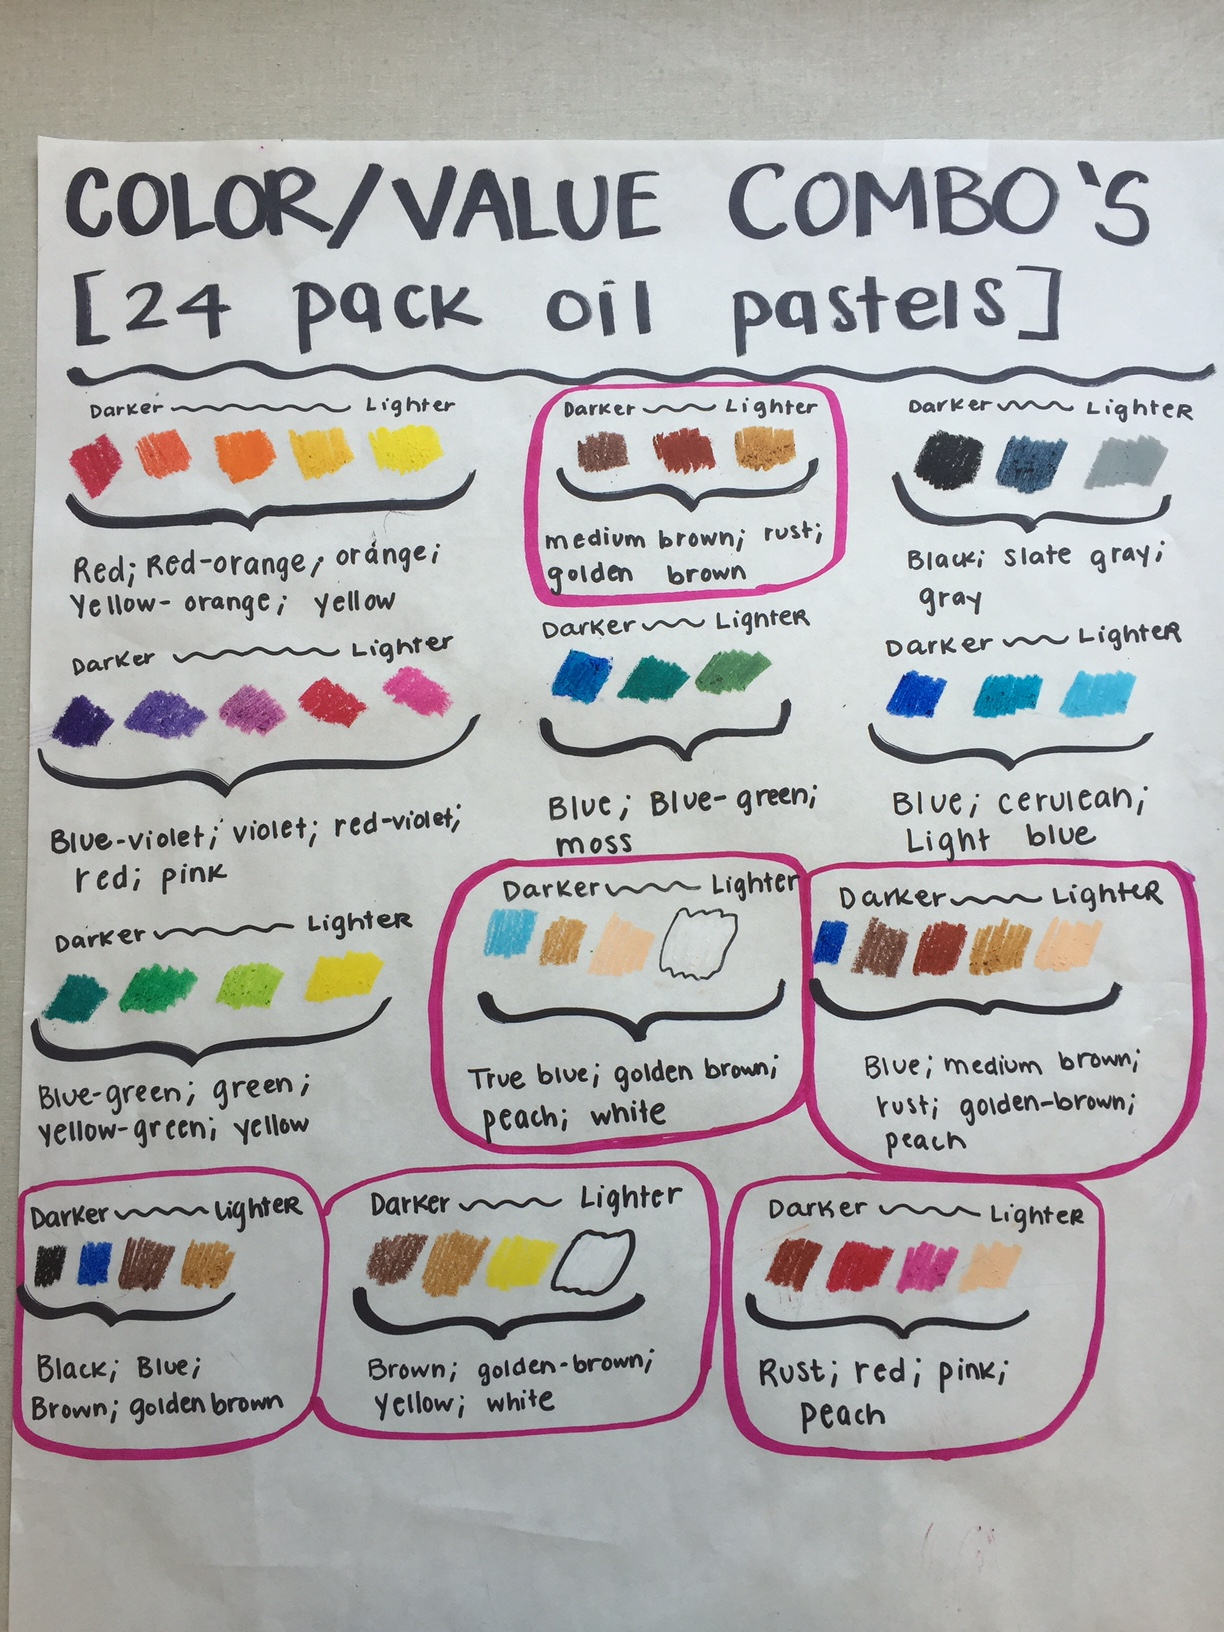 COLOR/VALUE COMBO'S
[24 pack oil pastels]
Darker Lighter
Red; Red-orange; orange;
Yellow-orange; yellow
Darker Lighter
medium brown; rust;
golden brown
Darker Lighter
Black; slate gray;
gray
Darker Lighter
Blue-violet; violet; red-violet;
red; pink
Darker Lighter
Blue; Blue-green;
moss
Darker Lighter
Blue; cerulean;
Light blue
Darker Lighter
Blue-green; green;
yellow-green; yellow
Darker Lighter
True blue; golden brown;
peach; white
Darker Lighter
Blue; medium brown;
rust; golden-brown;
peach
Darker Lighter
Black; Blue;
Brown; golden brown
Darker Lighter
Brown; golden-brown;
Yellow; white
Darker Lighter
Rust; red; pink;
peach